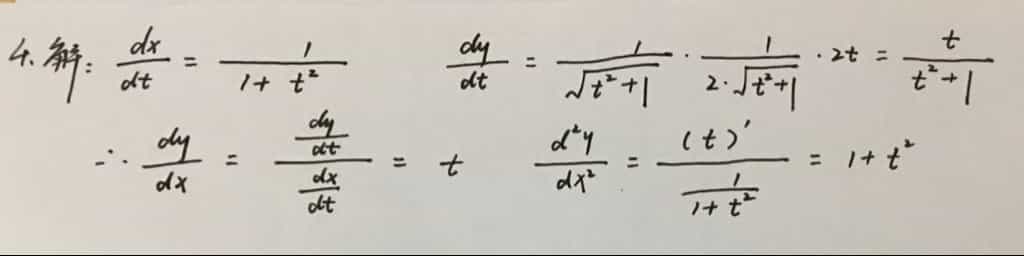 4. 解: \frac{dx}{dt} = \frac{1}{1+t^2} \frac{dy}{dt} = \frac{1}{\sqrt{t^2+1}} \cdot \frac{1}{2 \cdot \sqrt{t^2+1}} \cdot 2t = \frac{t}{t^2+1}
\therefore \frac{dy}{dx} = \frac{\frac{dy}{dt}}{\frac{dx}{dt}} = t \frac{d^2y}{dx^2} = \frac{(t)'}{\frac{1}{1+t^2}} = 1+t^2